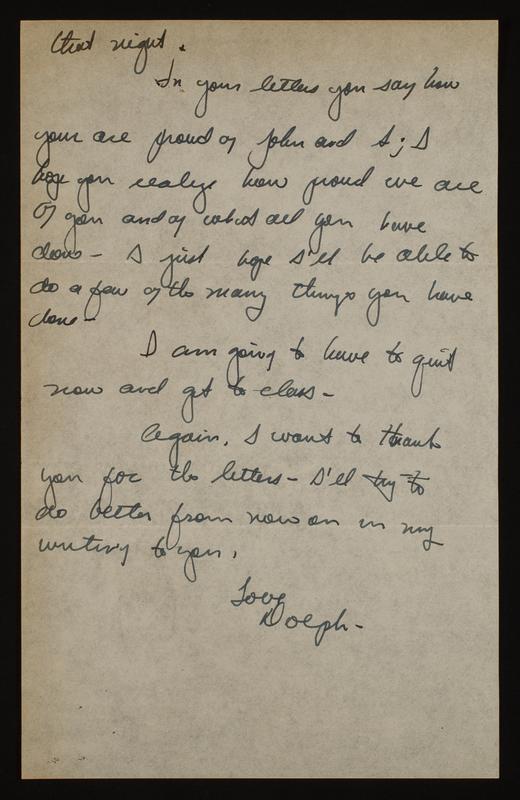 that night.
In your letters you say how
your are proud of John and I; I
hope you realize how proud we are
of you and of what all you have
done - I just hope I'll be able to
do a few of the many things you have
done -
I am going to have to quit
now and get to class -
Again, I want to thank
you for the letters - I'll try to
do better from now on in my
writing to you.
Love
Dolph -